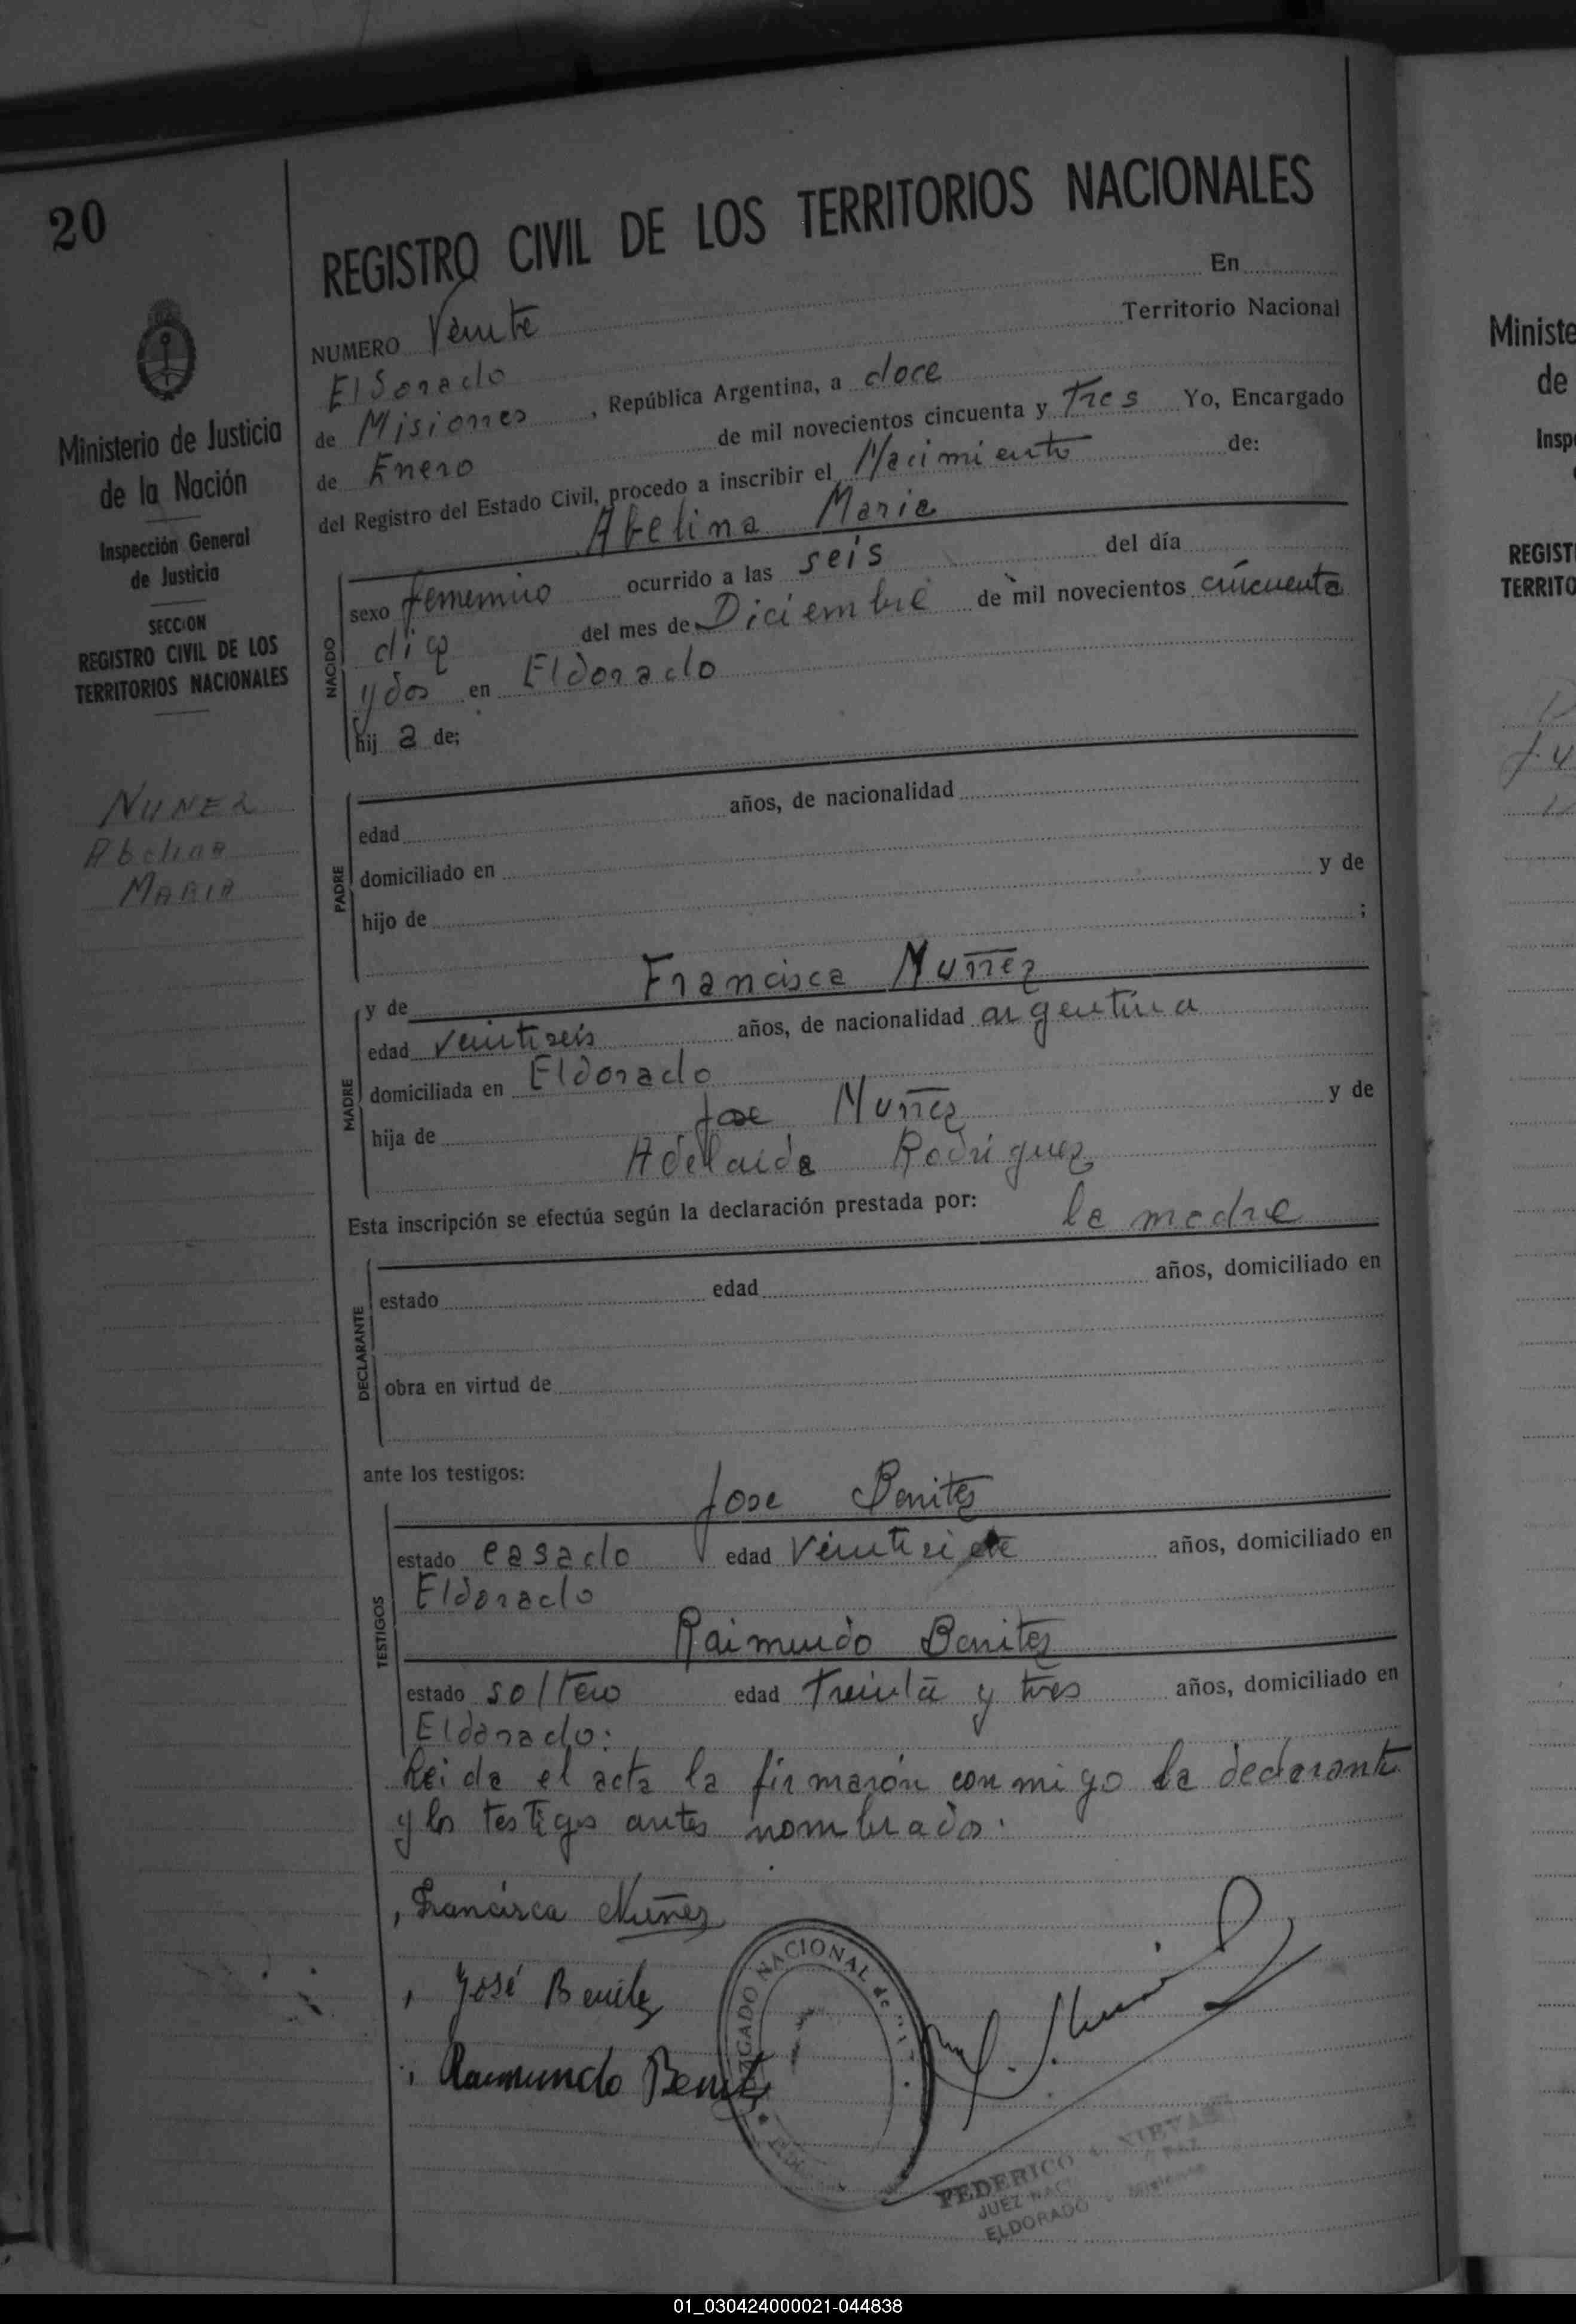 20
REGISTRO CIVIL DE LOS TERRITORIOS NACIONALES
NUMERO Veinte En
Eldorado Territorio Nacional
de Misiones, República Argentina, a doce
de Enero de mil novecientos cincuenta y Tres Yo, Encargado
del Registro del Estado Civil, procedo a inscribir el Nacimiento de:
Abelina Maria
Ministerio de Justicia
de la Nación
Inspección General
de Justicia
SECCION
REGISTRO CIVIL DE LOS
TERRITORIOS NACIONALES
NUÑEZ
Abelina
MARIA
NACIDO
sexo femenino ocurrido a las seis del día
diez del mes de Diciembre de mil novecientos cincuenta
y dos en Eldorado
hij a de;
PADRE
edad años, de nacionalidad
domiciliado en
hijo de y de
;
MADRE
y de Francisca Nuñez
edad veintiseis años, de nacionalidad argentina
domiciliada en Eldorado
hija de Jose Nuñez y de
Adelaida Rodriguez
Esta inscripción se efectúa según la declaración prestada por: la madre
DECLARANTE
estado edad años, domiciliado en
obra en virtud de
ante los testigos:
Jose Benitez
TESTIGOS
estado casado edad Veintisiete años, domiciliado en
Eldorado
Raimundo Benitez
estado soltero edad Treinta y tres años, domiciliado en
Eldorado:
Leida el acta la firmarón conmigo la declarante
y los testigos antes nombrados.
Francisca Nuñez
José Benitez
Raimundo Benitez
JUZGADO NACIONAL de
FEDERICO NIEVAS
JUEZ NAC. PAZ
ELDORADO Misiones
Ministe
de
Insp
REGIST
TERRITO
01_030424000021-044838